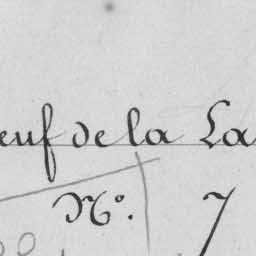 euf de la La
N°. 7